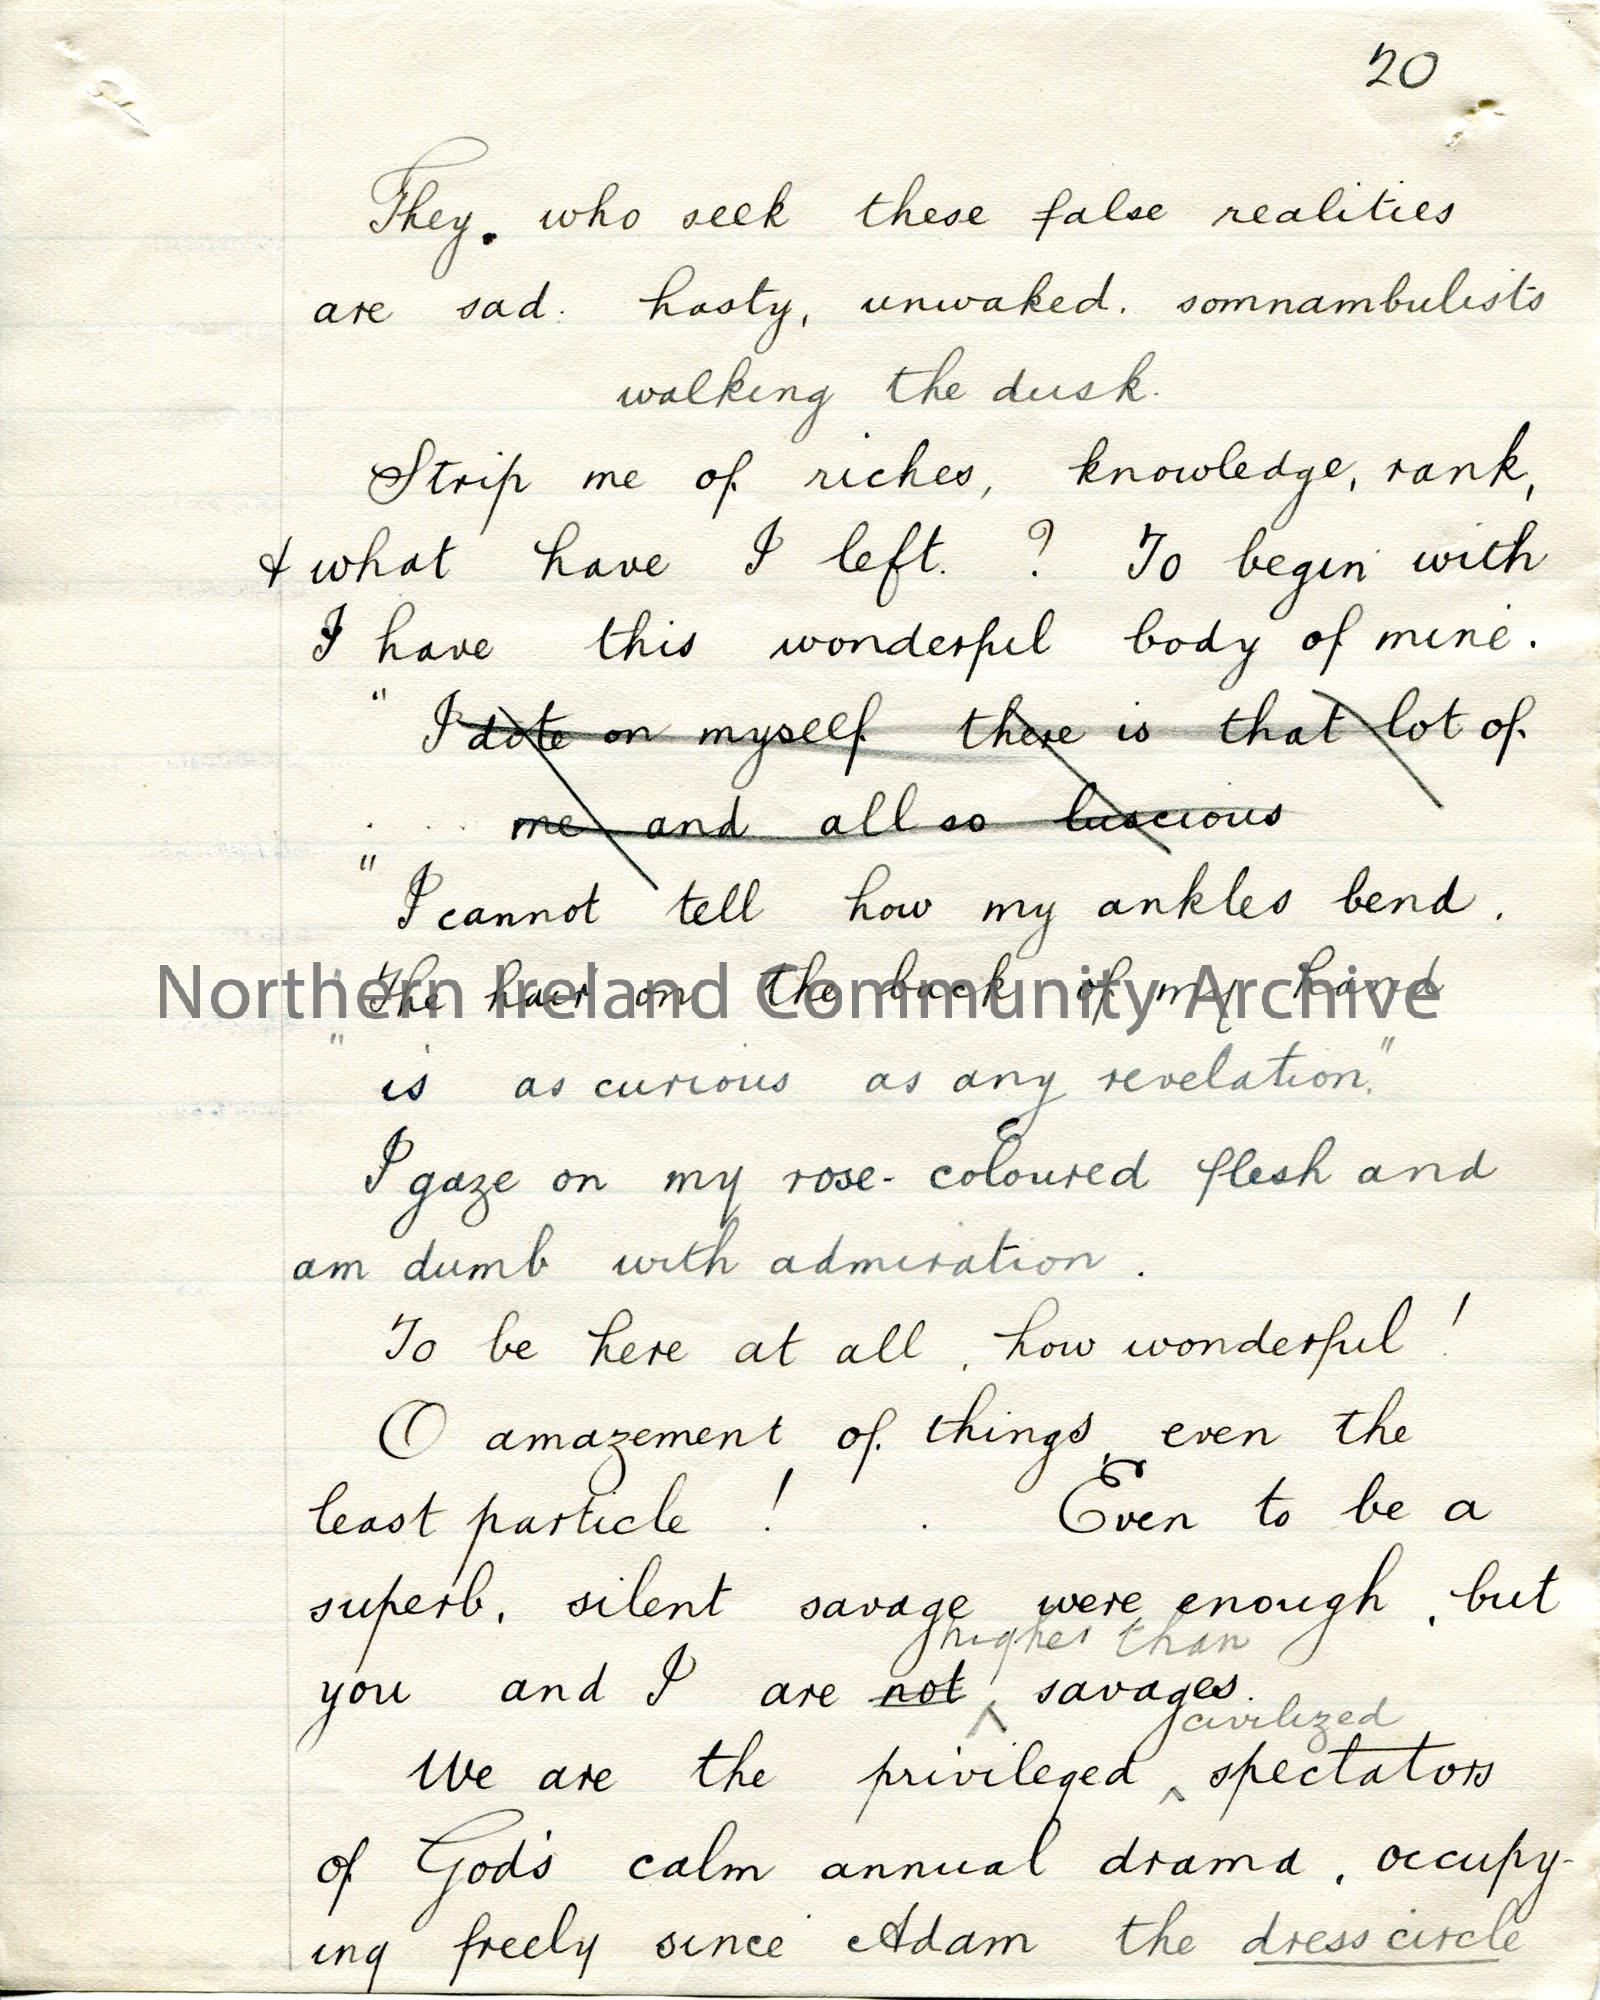 20
They. who seek these false realities
are sad. hasty, unwaked. somnambulists
walking the dusk.
Strip me of riches, knowledge, rank,
& what have I left. ? To begin with
I have this wonderful body of mine.
" I dote on myself there is that lot of
me and all so luscious
" I cannot tell how my ankles bend.
" The hair on the back of my hand
Northern Ireland Community Archive
" is as curious as any revelation."
I gaze on my rose-coloured flesh and
am dumb with admiration.
To be here at all, how wonderful!
O amazement of things, even the
least particle! Even to be a
superb, silent savage were enough, but
higher than
you and I are not ^ savages.
civilized
We are the privileged ^ spectators
of God's calm annual drama, occupy-
ing freely since Adam the dress circle